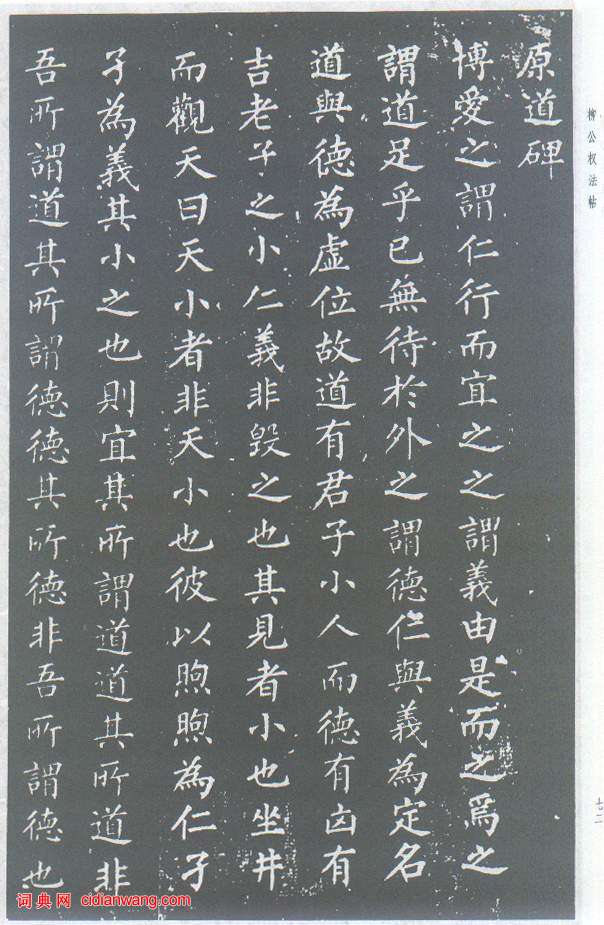 柳公权法帖
七二
原道碑
博愛之謂仁行而宜之之謂義由是而之焉之
謂道足乎已無待於外之謂德仁與義為定名
道與德為虛位故道有君子小人而德有凶有
吉老子之小仁義非毀之也其見者小也坐井
而觀天曰天小者非天小也彼以煦煦為仁孑
孑為義其小之也則宜其所謂道道其所道非
吾所謂道其所謂德德其所德非吾所謂德也
词典网 cidianwang.com